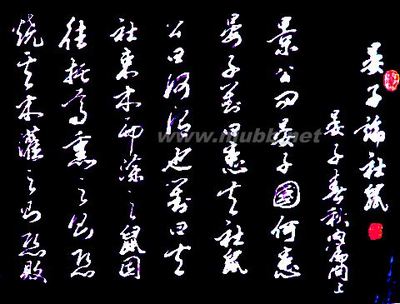 晏子論社鼠
晏子春秋內篇問上
景公問晏子國何患
晏子對曰患夫社鼠
公曰何謂也對曰夫
社束木而涂之鼠因
往托焉熏之則恐
燒其木灌之則恐敗